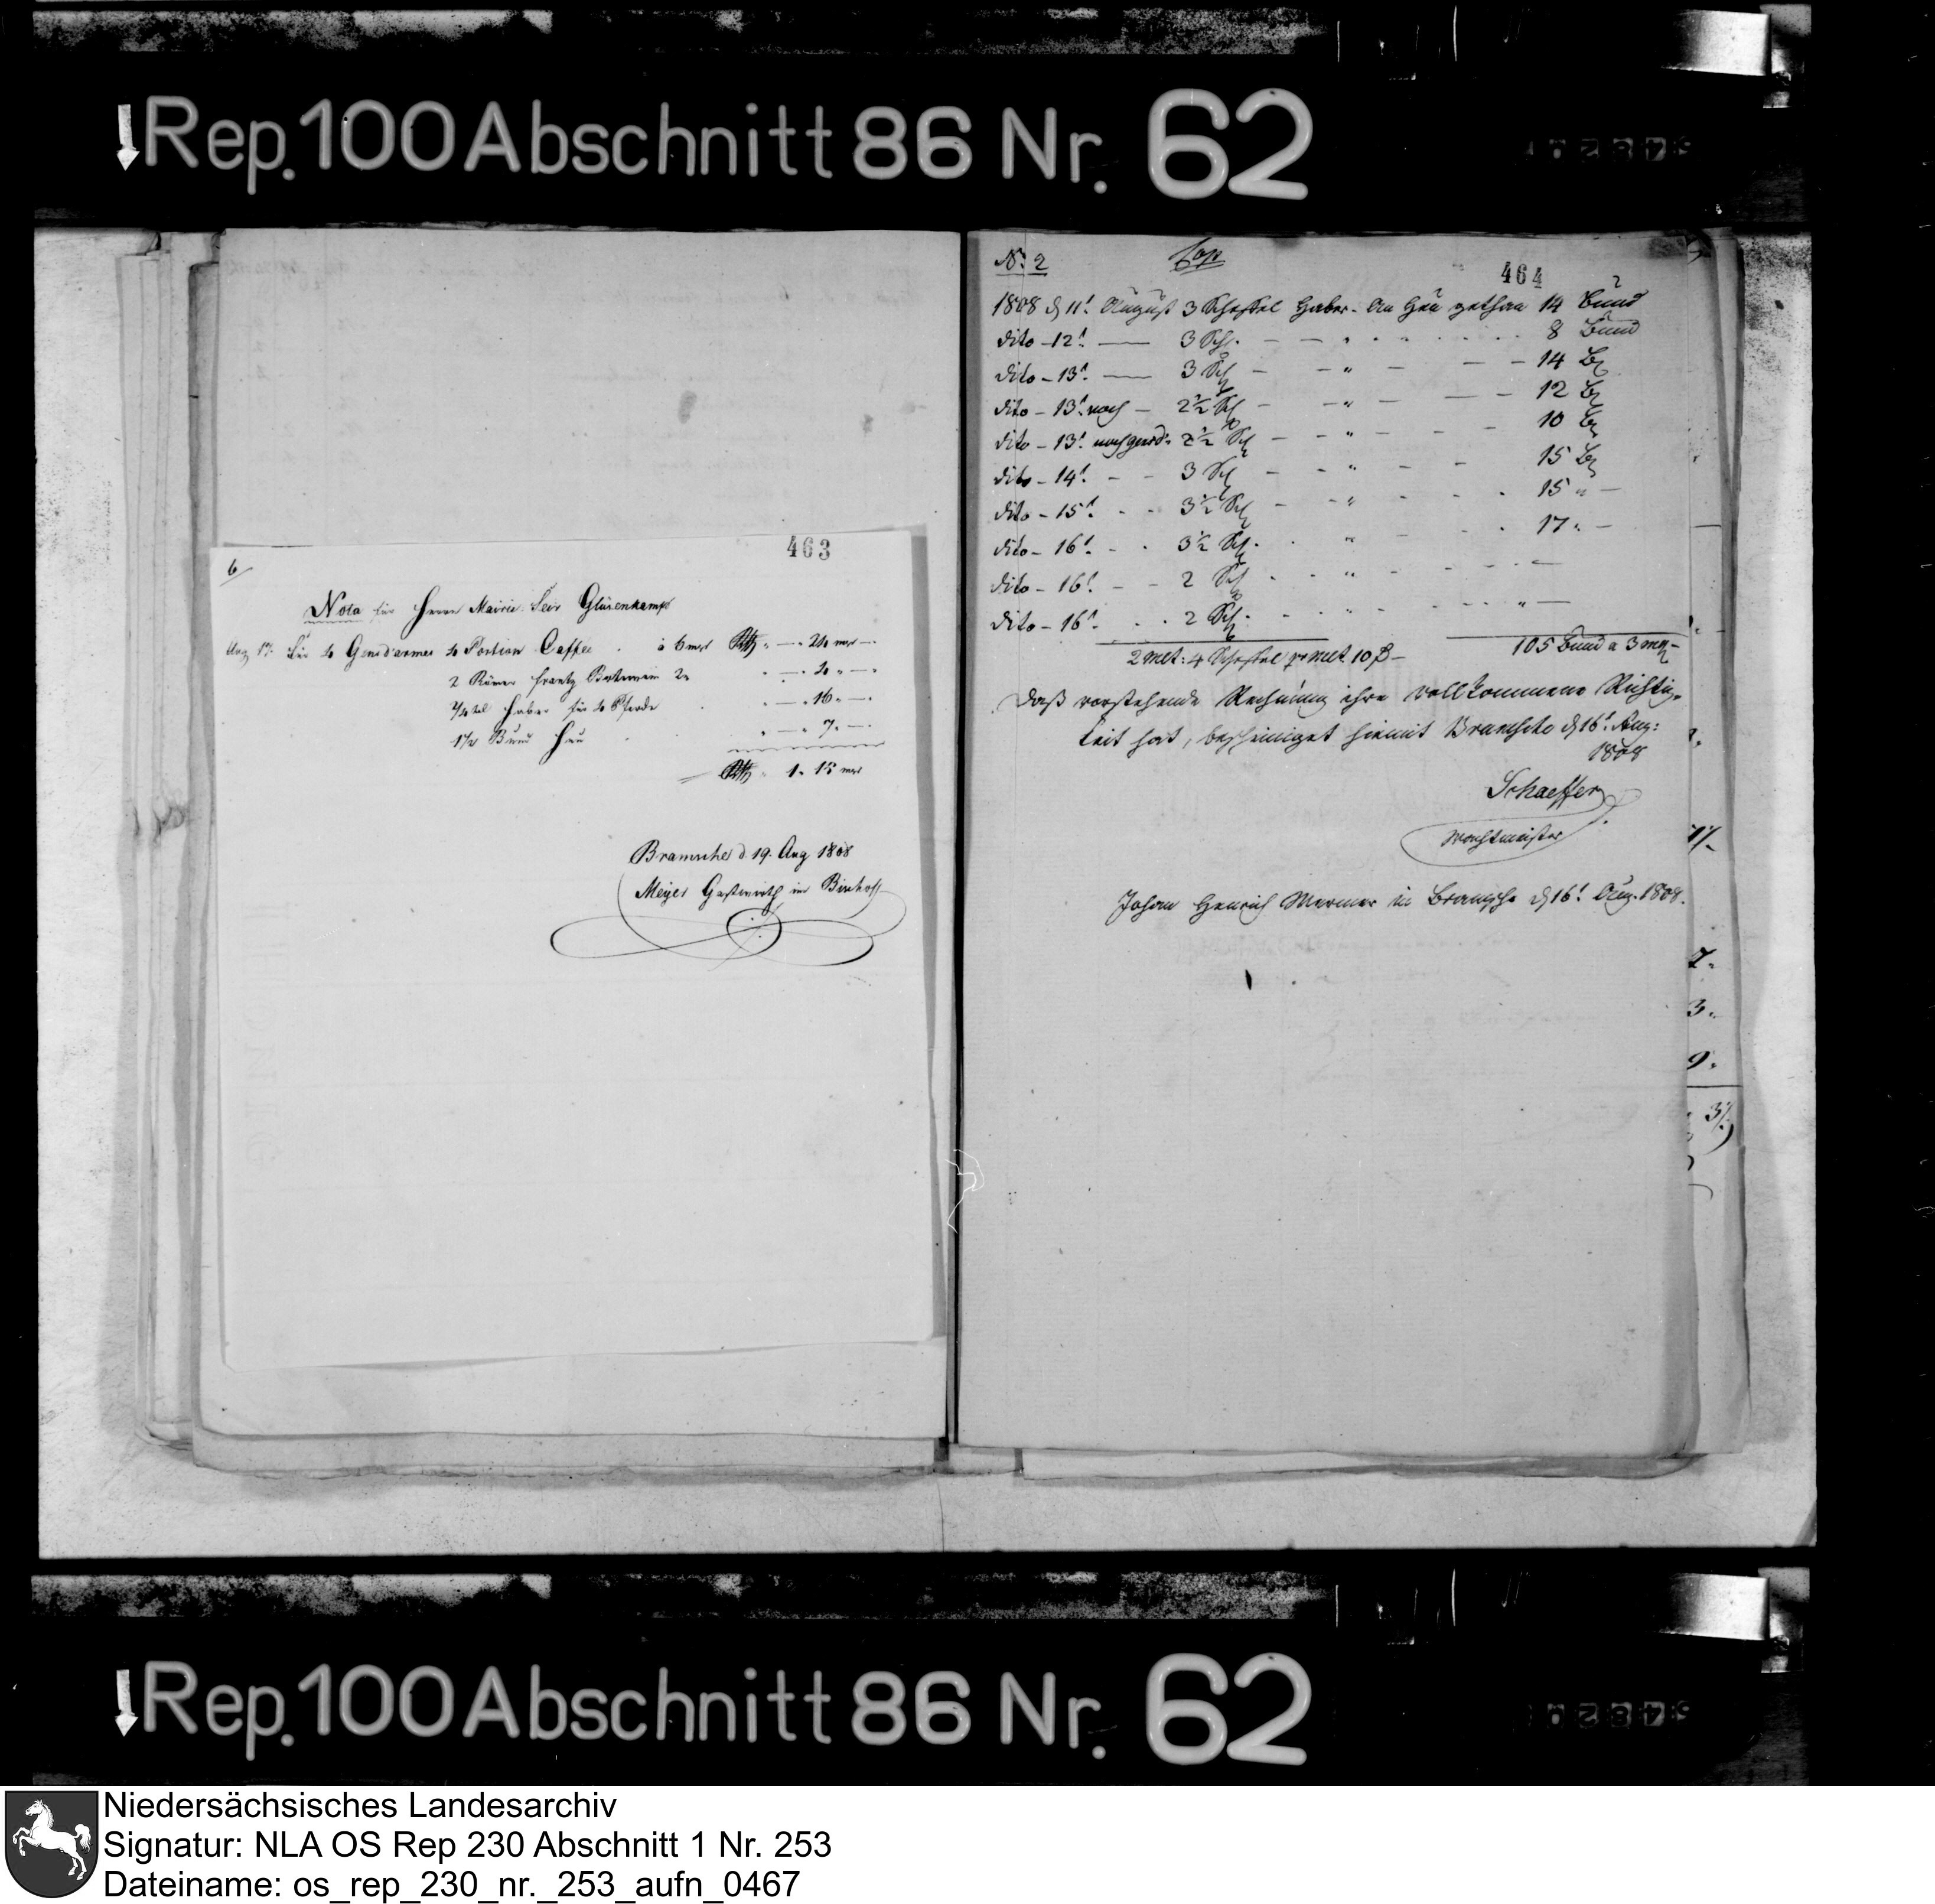 Rep. 100 Abschnitt 86 Nr. 62
463
6
Nota für Herrn Mairie Glüsenkamp
Aug 17. Für 4 Gensd'armes 4 Portion Caffee à 6 mgr Rthlr " — 24 mgr —
2 Römer frantz Brantwein
Haber für 4 Pferde " — 16 " —
Bund Heu " — 7 " —
Rthlr 1. 15 mgr
Bramsche d. 19. Aug 1808
Meyer Gastwirth im
No. 2
464
1808 d 11t August 3 Scheffel Haber. An Heu gethan 14 Bund
dito - 12t — 3 Sch. 8 Bund
dito - 13t — 3 Sch - " - 14 B
dito - 13t noch - 2½ Sch - " - 12 B
dito - 13t 2½ Sch - " - 10 B
dito - 14t - 3 Sch - " - 15 B
dito - 15t 3½ Sch - " - 15 " —
dito - 16t 3½ Sch " - 17 " —
dito - 16t - 2 Sch " —
dito - 16t 2 Sch " —
2 Mlt: 4 Scheffel pr Mlt 10 105 Bund a 3
Daß vorstehende Rechnung ihre vollkommene Richtig-
keit hat, bescheiniget hiemit Bramsche d 16t Aug:
1808
Schaeffer
Wachtmeister
Johan Henrich in Bramsche d 16t Aug. 1808.
Rep. 100 Abschnitt 86 Nr. 62
Niedersächsisches Landesarchiv
Signatur: NLA OS Rep 230 Abschnitt 1 Nr. 253
Dateiname: os_rep_230_nr._253_aufn_0467